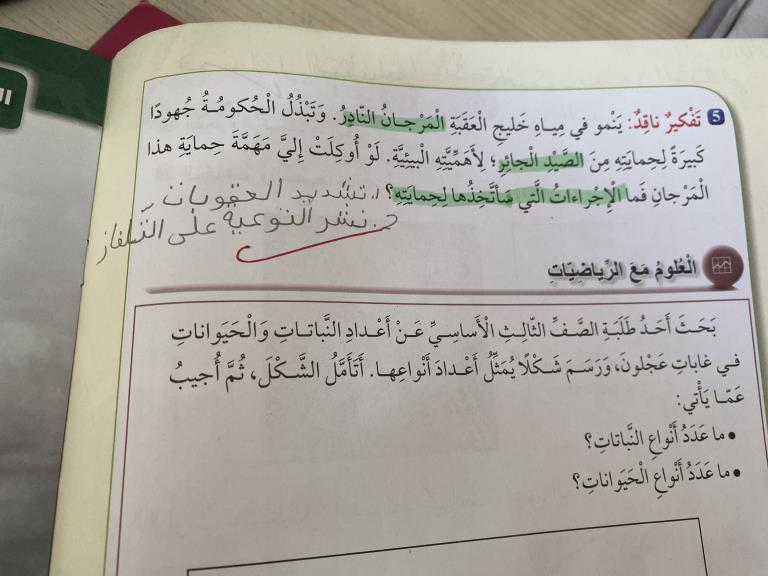 5 تَفْكيرٌ ناقِدٌ: يَنْمو في مِياهِ خَليجِ الْعَقَبَةِ الْمَرْجانُ النّادِرُ. وَتَبْذُلُ الْحُكومَةُ جُهودًا
كَبيرَةً لِحِمايَتِهِ مِنَ الصَّيْدِ الْجائِرِ؛ لِأَهَمِّيَّتِهِ الْبيئِيَّةِ. لَوْ أُوكِلَتْ إِلَيَّ مَهَمَّةَ حِمايَةِ هذا
الْمَرْجانِ فَما الْإِجْراءاتُ الَّتي سَأَتَّخِذُها لِحِمايَتِهِ؟ 1. تشديد العقوبات
2. نشر التوعية على التلفاز
الْعُلومُ مَعَ الرِّياضِيّاتِ
بَحَثَ أَحَدُ طَلَبَةِ الصَّفِّ الثّالِثِ الْأَساسِيِّ عَنْ أَعْدادِ النَّباتاتِ وَالْحَيَواناتِ
في غاباتِ عَجْلونَ، وَرَسَمَ شَكْلًا يُمَثِّلُ أَعْدادَ أَنْواعِها. أَتَأَمَّلُ الشَّكْلَ، ثُمَّ أُجيبُ
عَمّا يَأْتي:
• ما عَدَدُ أَنْواعِ النَّباتاتِ؟
• ما عَدَدُ أَنْواعِ الْحَيَواناتِ؟